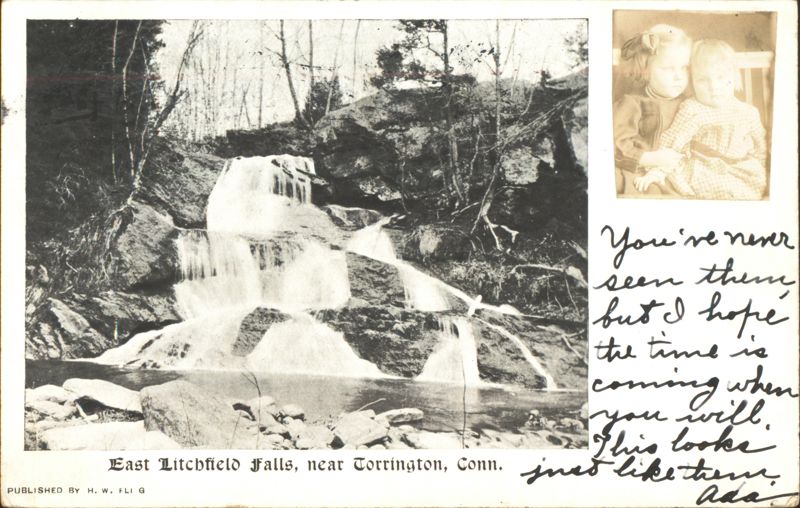 You've never
seen them,
but I hope
the time is
coming when
you will.
This looks
just like them
Ada.
East Litchfield Falls, near Torrington, Conn.
PUBLISHED BY H. W. FLI G